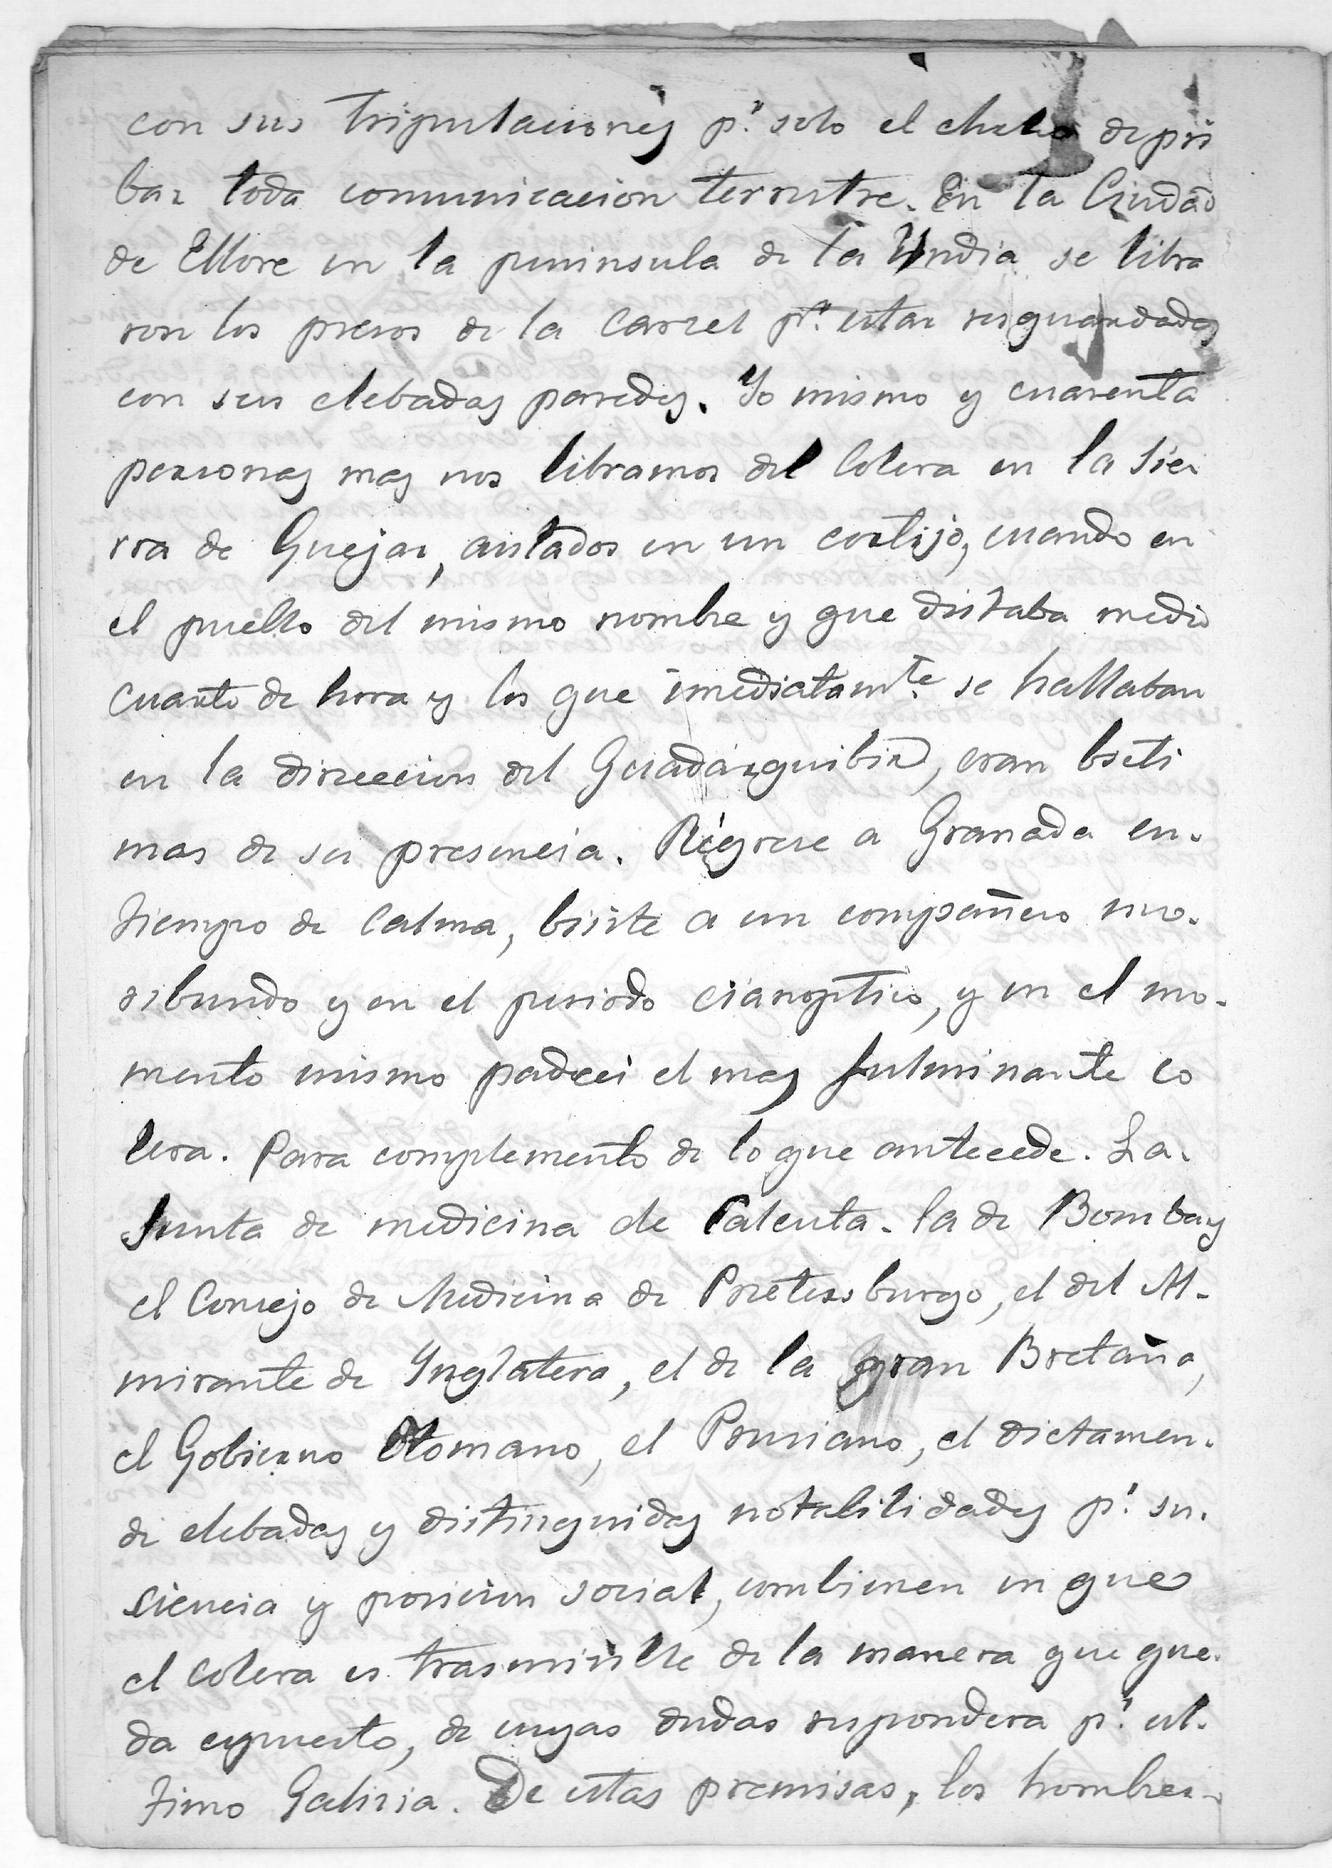 con sus tripulaciones p.r solo el echo de pri
bar toda comunicacion terrestre. En la Ciudad
de Ellore en la peninsula de la Yndia se libra
ron los presos de la Carzel p.r estar resguardados
con sus elebadas paredes. Yo mismo y cuarenta
personas mas nos libramos del Colera en la Sier
rra de Guejar, aislados en un cortijo, cuando en
el pueblo del mismo nombre y que distaba medio
cuarto de hora y los que imediatam.te se hallaban
en la direccion del Guadarquibir, eran bicti
mas de su presencia. Regrese a Granada en.
tiempo de Calma, bisite a un compañero mo.
ribundo y en el periodo cianoptico, y en el mo.
mento mismo padeci el mas fulminante co
lera. Para complemento de lo que antecede. La.
Junta de medicina de Calcuta. la de Bombay
el Consejo de Medicina de Pretersburgo, el del Al.
mirante de Ynglatera, el de la gran Bretaña,
el Gobierno Otomano, el Prusiano, el dictamen.
de elebadas y distinguidas notabilidades p.r su.
siencia y posicion social, combienen en que
el colera es trasmisible de la manera que que.
da espuesto, de cuyas dudas respondera p.r ul.
timo Galicia. De estas premisas, los hombres.